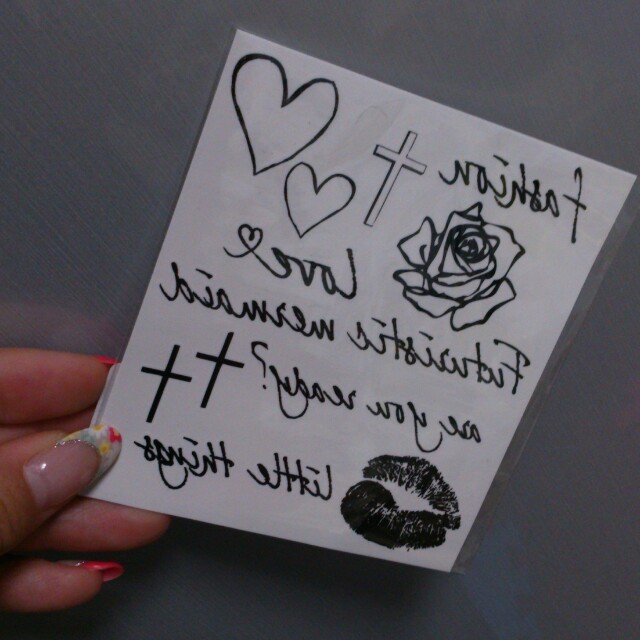 fashion
love
Futuristic mermaid
are you ready?
little things